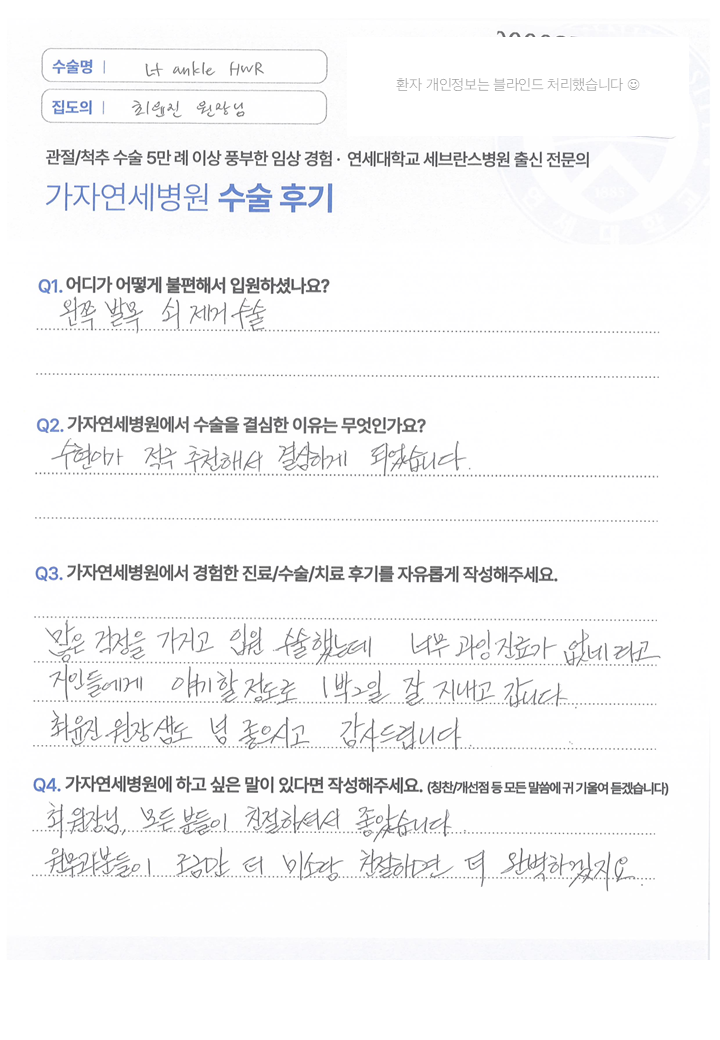 수술명 | Lt ankle HWR
집도의 | 최윤진 원장님
환자 개인정보는 블라인드 처리했습니다 ☺
관절/척추 수술 5만 례 이상 풍부한 임상 경험 · 연세대학교 세브란스병원 출신 전문의
가자연세병원 수술 후기
Q1. 어디가 어떻게 불편해서 입원하셨나요?
왼쪽 발목 쇠 제거수술
Q2. 가자연세병원에서 수술을 결심한 이유는 무엇인가요?
수현이가 적극 추천해서 결심하게 되었습니다.
Q3. 가자연세병원에서 경험한 진료/수술/치료 후기를 자유롭게 작성해주세요.
많은 걱정을 가지고 입원 수술했는데 너무 과잉진료가 없네라고
지인들에게 얘기할 정도로 1박2일 잘 지내고 갑니다.
최윤진 원장샘도 넘 좋으시고 감사드립니다.
Q4. 가자연세병원에 하고 싶은 말이 있다면 작성해주세요. (칭찬/개선점 등 모든 말씀에 귀 기울여 듣겠습니다)
최원장님, 모든분들이 친절하셔서 좋았습니다.
원무과분들이 조금만 더 미소랑 친절하면 더 완벽하겠지요.